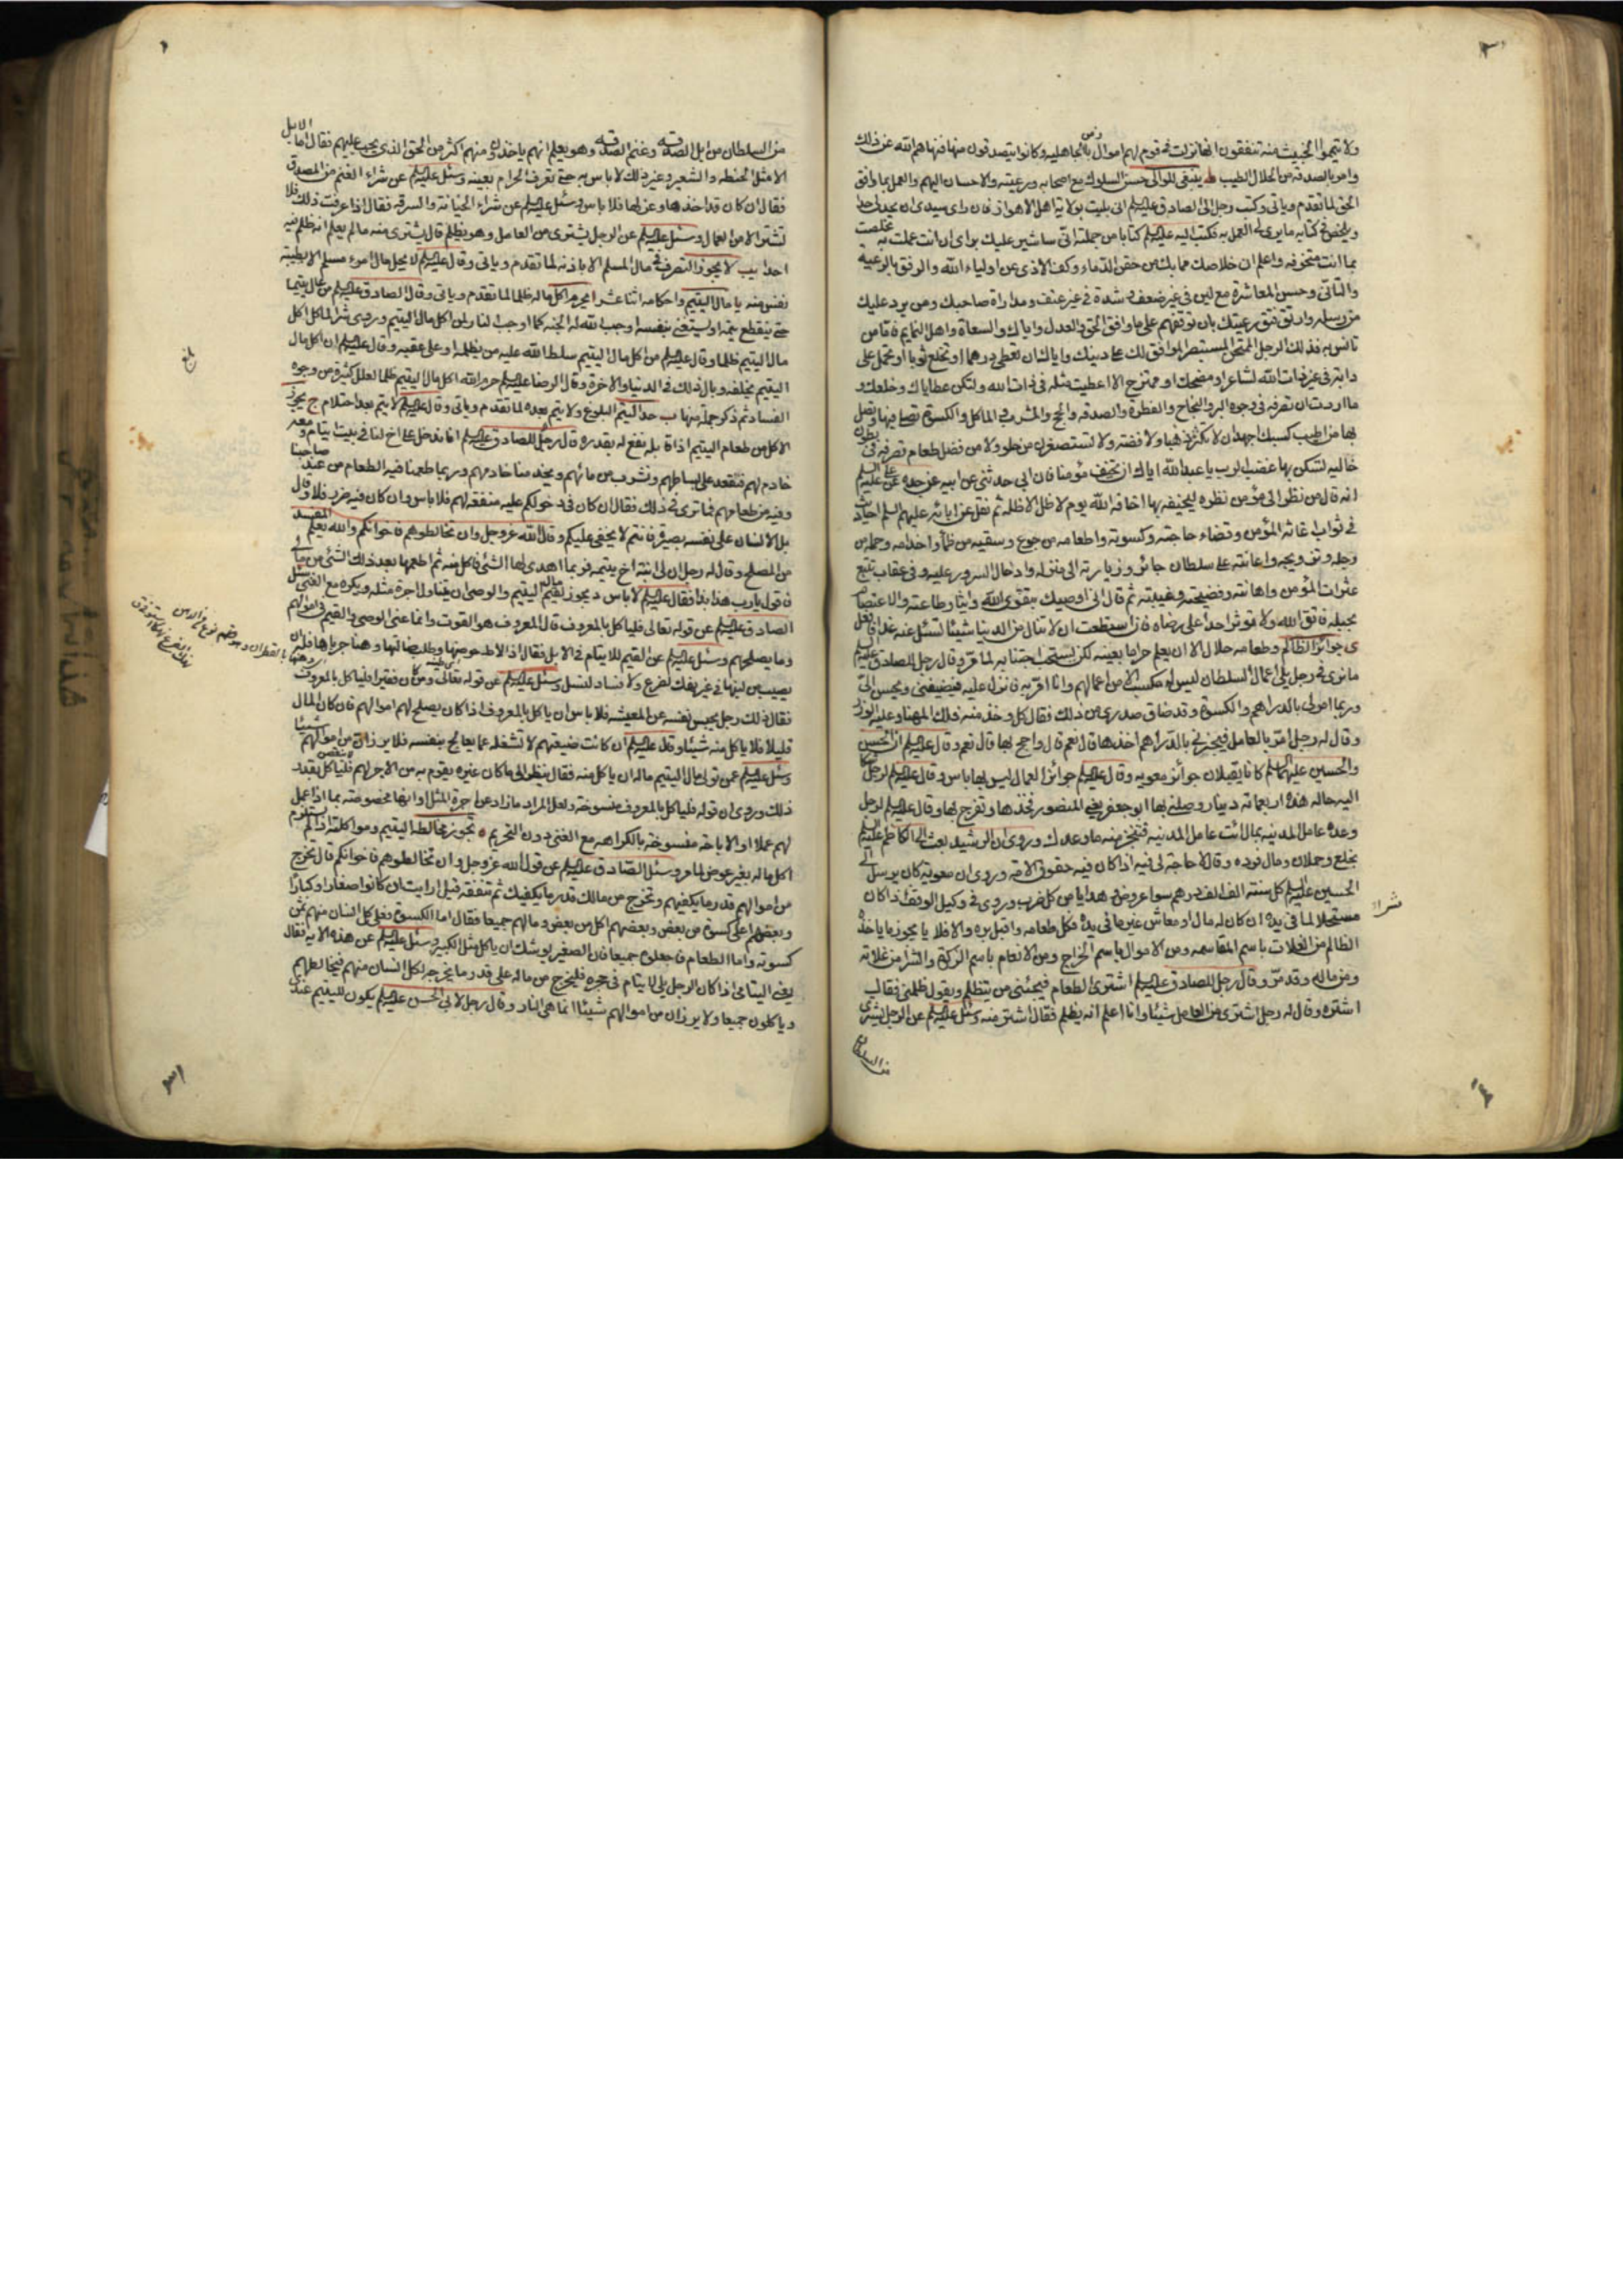 ولا تيمموا الخبيث منه تنفقون انها نزلت في قوم لهم اموال من ربا الجاهليه وكانوا يتصدقون منها فنهاهم الله عن ذلك
وامر بالصدقه من الحلال الطيب ينبغي للوالي حسن السلوك مع اصحابه ورعيته والاحسان اليهم والعمل بما وافق
الحق لما تقدم وياتي وكتب رجل الى الصادق عليه السلم اني بليت بولاية اهل الاهواز فان راى سيدي ان يحد لي حدا
ويلخص في كتابه ما يرى لي العمل به فكتب اليه عليه السلم كتابا من جملته اني ساشير عليك براى ان انت عملت به تخلصت
مما انت متخوفه واعلم ان خلاصك مما بك من حقن الدماء وكف الاذى عن اولياء الله والرفق بالرعيه
والتاني وحسن المعاشرة مع لين في غير ضعف وشدة في غير عنف ومداراة صاحبك ومن يرد عليك
من رسله وارتق فتق رعيتك بان توقفهم على ما وافق الحق والعدل واياك والسعاة واهل النمايم فاما من
تانس به فذلك الرجل الممتحن المستبصر الموافق لك على دينك واياك ان تعطي درهما او تخلع ثوبا او تحمل على
دابة في غير ذات الله لشاعر او مضحك او ممتزح الا اعطيت مثله في ذات الله ولتكن عطاياك وخلعك و
ما اردت ان تصرفه في وجوه البر والنجاح والفطرة والصدقه والحج والمشرب والماكل والكسوة تصلي فيها وتصل
بها من اطيب كسبك اجهد ان لا تكنز ذهبا ولا فضه ولا تستصغرن من حلو ولا من فضل طعام تصرفه في بطون
خاليه لتسكن بها غضب الرب يا عبد الله اياك ان تخيف مؤمنا فان ابي حدثني عن ابيه عن جده عن علي عليه السلم
انه قال من نظر الى مؤمن نظره ليخيفه بها اخافه الله يوم لا ظل الا ظله ثم نقل عن ابائه عليهم السلم احاديث
في ثواب اغاثة المؤمن وقضاء حاجته وكسوته واطعامه من جوع وسقيه من ظمأ واخدامه وحمله من
رجله وتزويجه واعانته على سلطان جائر وزيارته الى منزله وادخال السرور عليه وفي عقاب تتبع
عثرات المؤمن واهانته وفضيحته وغيبته ثم قال اني اوصيك بتقوى الله وايثار طاعته والاعتصام
بحبله فاتق الله ولا تؤثر احدا على رضاه فان استطعت ان لا تنال من الدنيا شيئا تسئل عنه غدا فافعل
ى جوائز الظالم وطعامه حلال الا ان يعلم حراما بعينه لكن يستحب اجتنابه لما مر وقال رجل للصادق عليه السلم
ما ترى في رجل يلي اعمال السلطان ليس له مكسب الا من اعمالهم وانا امر به فانزل عليه فيضيفني ويحسن الي
وربما امر لي بالدراهم والكسوة وقد ضاق صدري من ذلك فقال كل وخذ منه فلك المهنا وعليه الوزر
وقال له رجل امر بالعامل فيجيزني بالدراهم اخذها قال نعم قال واحج بها قال نعم وقال عليه السلم ان الحسن
والحسين عليهما السلم كانا يقبلان جوائز معويه وقال عليه السلم جوائز العمال ليس بها باس وقال عليه السلم لرجل
اليه حاله هذه اربعمائة دينار وصلني بها ابو جعفر يعني المنصور فخذها وتفرج بها وقال عليه السلم لرجل
وعده عامل المدينه بمال ائت عامل المدينه فتنجز منه ما وعدك وروى ان الرشيد بعث الى الكاظم عليه السلم
بخلع وحملان ومال فرده وقال لا حاجة لي فيه اذا كان فيه حقوق الامه وروى ان معويه كان يرسل الى
الحسين عليه السلم كل سنة الف الف درهم سوا عروض وهدايا من كل ضرب وروى في وكيل الوقف اذا كان
مستحلا لما في يده ان كان له مال او معاش غير ما في يده فكل طعامه واقبل بره والا فلا يا يجوز شراء ما ياخذه
الظالم من الغلات باسم المقاسمه ومن الاموال باسم الخراج ومن الانعام باسم الزكوة والشرا من غلاته
ومن ماله وقد مر وقال رجل للصادق عليه السلم اشترى الطعام فيجيئني من يتظلم ويقول ظلمني فقال
اشتره وقال له رجل اشترى من العامل شيئا وانا اعلم انه يظلم فقال اشتر منه وسئل عليه السلم عن الرجل يشترى
من السلطان
من السلطان من ابل الصدقه وغنم الصدقه وهو يعلم انهم ياخذون منهم اكثر من الحق الذي يجب عليهم فقال ما الابل
الا مثل الحنطه والشعير وغير ذلك لا باس به حتى تعرف الحرام بعينه وسئل عليه السلم عن شراء الغنم من المصدق
فقال ان كان قد اخذها وعزلها فلا باس وسئل عليه السلم عن شراء الخيانة والسرقه فقال اذا عرفت ذلك فلا
تشتر الا من العمال وسئل عليه السلم عن الرجل يشترى من العامل وهو يظلم قال يشترى منه ما لم يعلم انه ظلم فيه
احدا يب لا يجوز التصرف في مال المسلم الا باذنه لما تقدم وياتي وقال عليه السلم لا يحل مال امرء مسلم الا بطيبة
نفس منه يا مال اليتيم واحكامه اثنا عشر ا يحرم اكل ماله ظلما لما تقدم وياتي وقال الصادق عليه السلم من عال يتيما
حتى ينقطع يتمه او يستغني بنفسه اوجب الله له الجنه كما اوجب النار لمن اكل مال اليتيم وروى شر الماكل اكل
مال اليتيم ظلما وقال عليه السلم من اكل مال اليتيم سلط الله عليه من يظلمه او على عقبه وقال عليه السلم ان اكل مال
اليتيم يخلفه وبال ذلك في الدنيا والاخرة وقال الرضا عليه السلم حرم الله اكل مال اليتيم ظلما لعلل كثيرة من وجوه
الفساد ثم ذكر جملة منها ب حد اليتم البلوغ ولا يتم بعده لما تقدم وياتي وقال عليه السلم لا يتم بعد احتلام ج يجوز
الاكل من طعام اليتيم اذا قابله بنفع له بقدره قال رجل للصادق عليه السلم انا ندخل على اخ لنا في بيت يتام ومعه
خادم لهم فنقعد على بساطهم ونشرب من مائهم ويخدمنا خادمهم وربما طعمنا فيه الطعام من عند صاحبنا
وفيه من طعامهم فما ترى في ذلك فقال ان كان في دخولكم عليه منفعه لهم فلا باس وان كان فيه ضرر فلا وقال
بل الانسان على نفسه بصيرة فانتم لا يخفى عليكم وقال الله عز وجل وان تخالطوهم فاخوانكم والله يعلم المفسد
من المصلح وقال له رجل ان لي ابنة اخ يتيمة فربما اهدى لها الشئ فاكل منه ثم اطعمها بعد ذلك الشئ من مالي
فاقول يا رب هذا بذا فقال عليه السلم لا باس د يجوز لقيم مال اليتيم والوصي ان يتناول اجرة مثله ويكره مع الغنى سئل
الصادق عليه السلم عن قوله تعالى فلياكل بالمعروف قال المعروف هو القوت وانما عنى الوصي والقيم في اموالهم
وما يصلحهم وسئل عليه السلم عن القيم للايتام في الابل فقال اذا لاط حوضها وطلب ضالتها وهنا جرباها فله ان
يصيب من لبنها في غير نهك لضرع ولا فساد لنسل وسئل عليه السلم عن قوله تعالى ومن كان فقيرا فلياكل بالمعروف
فقال ذلك رجل يحبس نفسه عن المعيشه فلا باس ان ياكل بالمعروف اذا كان يصلح لهم اموالهم فان كان المال
قليلا فلا ياكل منه شيئا وقال عليه السلم ان كانت ضيعتهم لا تشغله عما يعالج بنفسه فلا يرزان من اموالهم شيئا
وسئل عليه السلم عمن تولى مال اليتيم ماله ان ياكل منه فقال ينظر الى ما كان غيره يقوم به من الاجر لهم فلياكل بقدر
ذلك وروى ان قوله فلياكل بالمعروف منسوخة ولعل المراد ما زاد عن اجرة المثل او انها مخصوصة بما اذا عمل
لهم عملا او الاباحة منسوخة بالكراهه مع الغنى دون التحريم ه تجوز مخالطه اليتيم ومواكلته اذا لم يستلزم
اكل ماله بغير عوض لما مر وسئل الصادق عليه السلم عن قول الله عز وجل وان تخالطوهم فاخوانكم قال تخرج
من اموالهم قدر ما يكفيهم وتخرج من مالك قدر ما يكفيك ثم تنفقه قيل ارايت ان كانوا صغارا وكبارا
وبعضهم اعلى كسوة من بعض وبعضهم اكل من بعض ومالهم جميعا فقال اما الكسوة فعلى كل انسان منهم ثمن
كسوته واما الطعام فاجعلوه جميعا فان الصغير يوشك ان ياكل مثل الكبير وسئل عليه السلم عن هذه الايه فقال
يعني اليتامى اذا كان الرجل يلي لايتام في حجره فليخرج من ماله على قدر ما يخرج لكل انسان منهم فيخالطهم
وياكلون جميعا ولا يرزان من اموالهم شيئا انما هي النار وقال رجل لابي الحسن عليه السلم يكون لليتيم عندي
بلغ